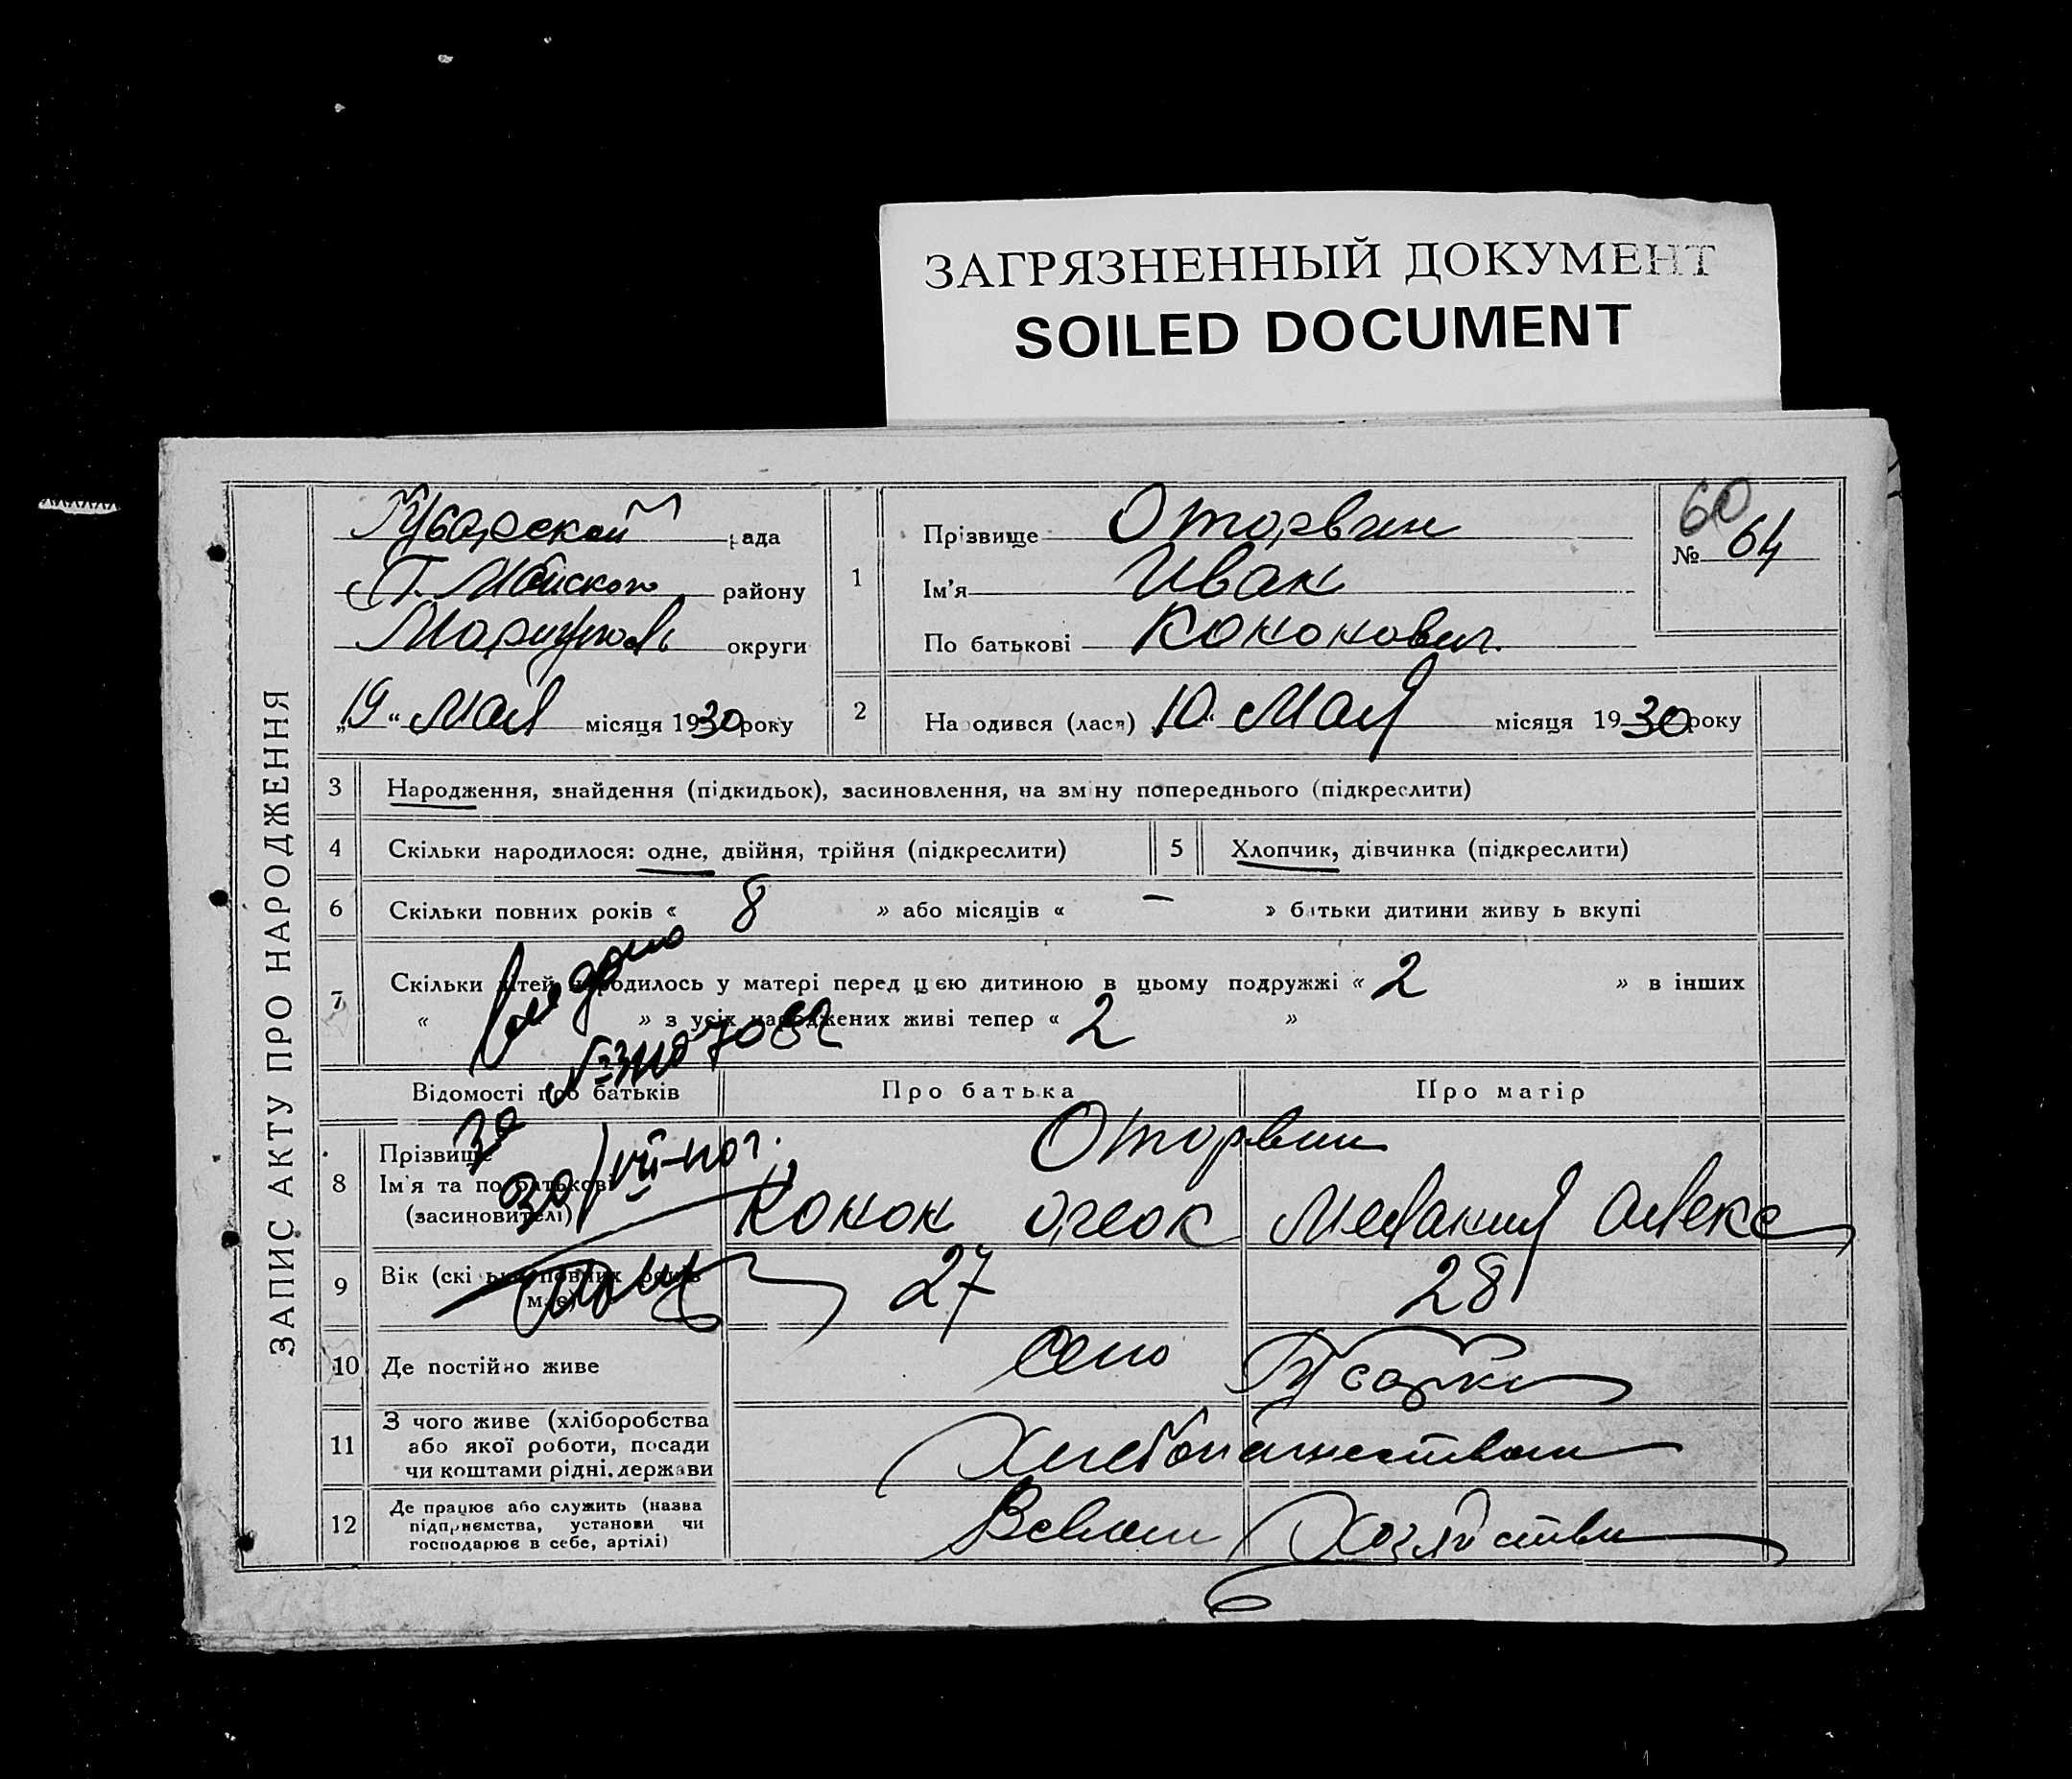 ЗАГРЯЗНЕННЫЙ ДОКУМЕНТ
SOILED DOCUMENT
ЗАПИС АКТУ ПРО НАРОДЖЕННЯ
рада
району
округи
„19“ Мая місяця 1930 року
1
Прізвище Оторвин
Ім'я Иван
По батькові Кононович.
60
№ 64
2 Народився (лася) 10 Мая місяця 1930 року
3 Народження, знайдення (підкидьок), засиновлення, на зміну попереднього (підкреслити)
4 Скільки народилося: одне, двійня, трійня (підкреслити)
5 Хлопчик, дівчинка (підкреслити)
6 Скільки повних років « 8 » або місяців « — » батьки дитини живуть вкупі
7 Скільки дітей народилось у матері перед цією дитиною в цьому подружжі « 2 » в інших
« » з усіх народжених живі тепер « 2 »
Відомості про батьків Про батька Про матір
8 Прізвище Оторвин
Ім'я та по батькові Конон Мелания Алекс
(засиновителі)
9 Вік (скільки повних років 27 28
має)
10 Де постійно живе село
11 З чого живе (хліборобства
або якої роботи, посади
чи коштами рідні, держави Хлебопашеством
12 Де працює або служить (назва
підприємства, установи чи
господарює в себе, артілі)